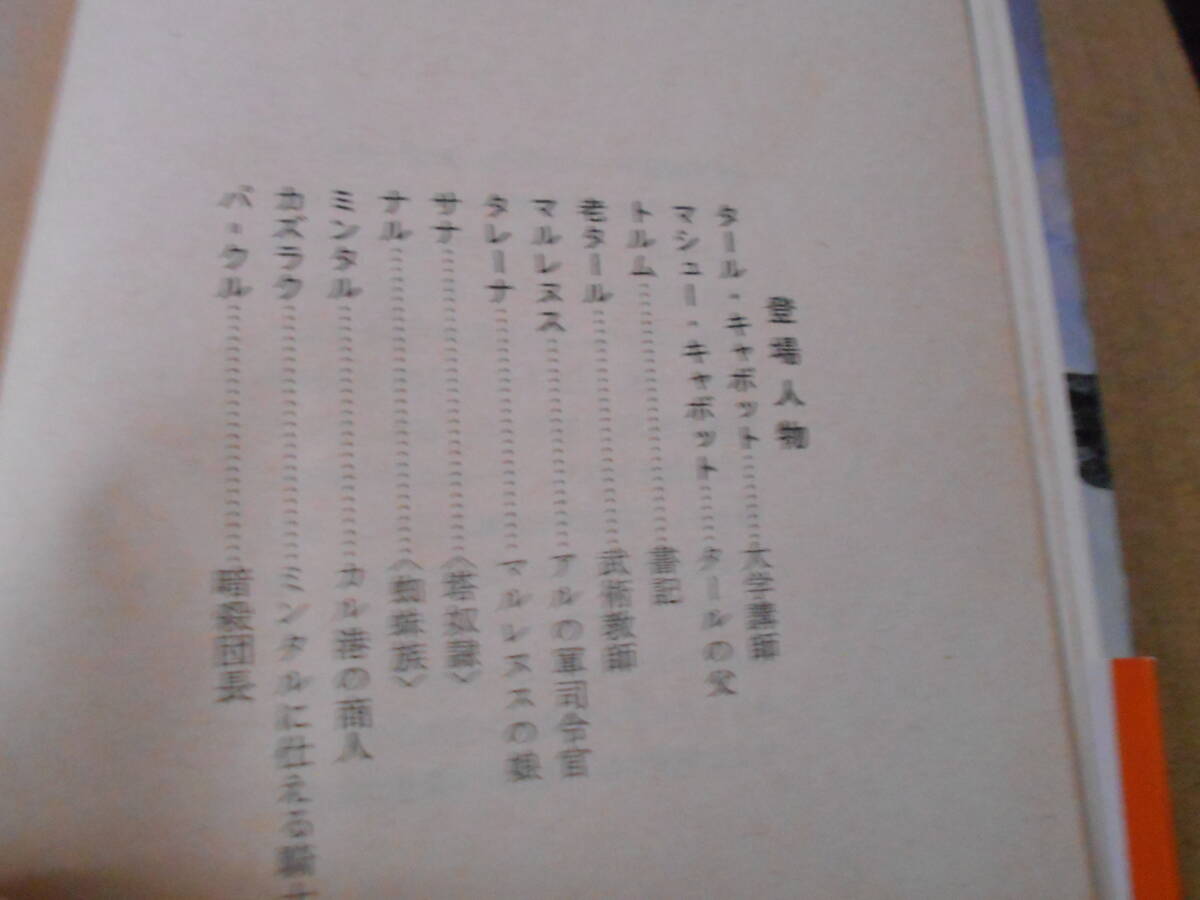 登場人物
タール・キャボット…………大学講師
マシュー・キャボット…………タールの父
トルム…………書記
老タール…………武術教師
マルレヌス…………アルの軍司令官
タレーナ…………マルレヌスの娘
サナ…………〈塔奴隷〉
ナル…………〈蜘蛛族〉
ミンタル…………カル港の商人
カズラク…………ミンタルに仕える騎士
パ・クル…………暗殺団長